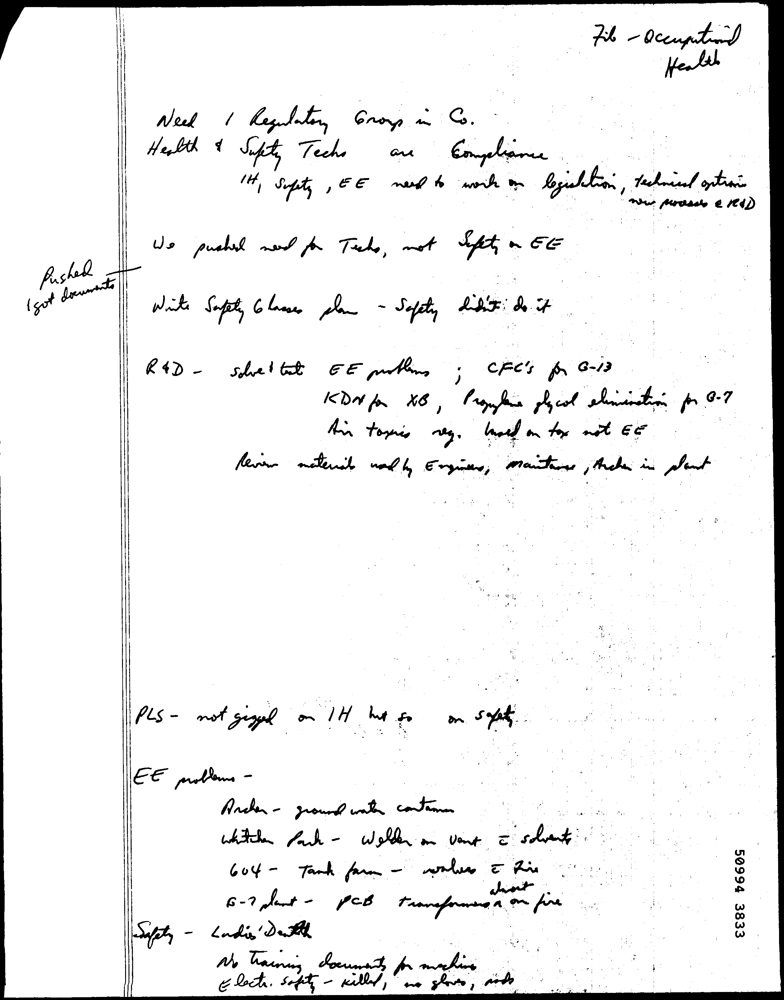 File - Occupational
Health
Need 1 Regulatory Group in Co.
Health & Safety Techs are Compliance
IH, Safety, EE need to work on legislation, technical options
new processes @ R&D
We pushed need for Techs, not Safety or EE
Pushed
I got documents
Write Safety Glasses plan - Safety didn't do it
R&D - solve & test EE problems ; CFC's for G-13
KDN for XB, Propylene glycol elimination for G-7
Air toxics reg. based on tox not EE
Review materials used by Engineers, Maintance, Archer in plant
PLS - not gigged on IH but so on safety
EE problems -
Archer - ground water contam
Whitaker Park - Welder on vent c̄ solvents
604 - Tank farm - valves c̄ fire
G-7 plant - PCB transformers almost on fire
Safety - Death
No training documents for machine
Electr. safety - killed, no gloves, rods
50994 3833